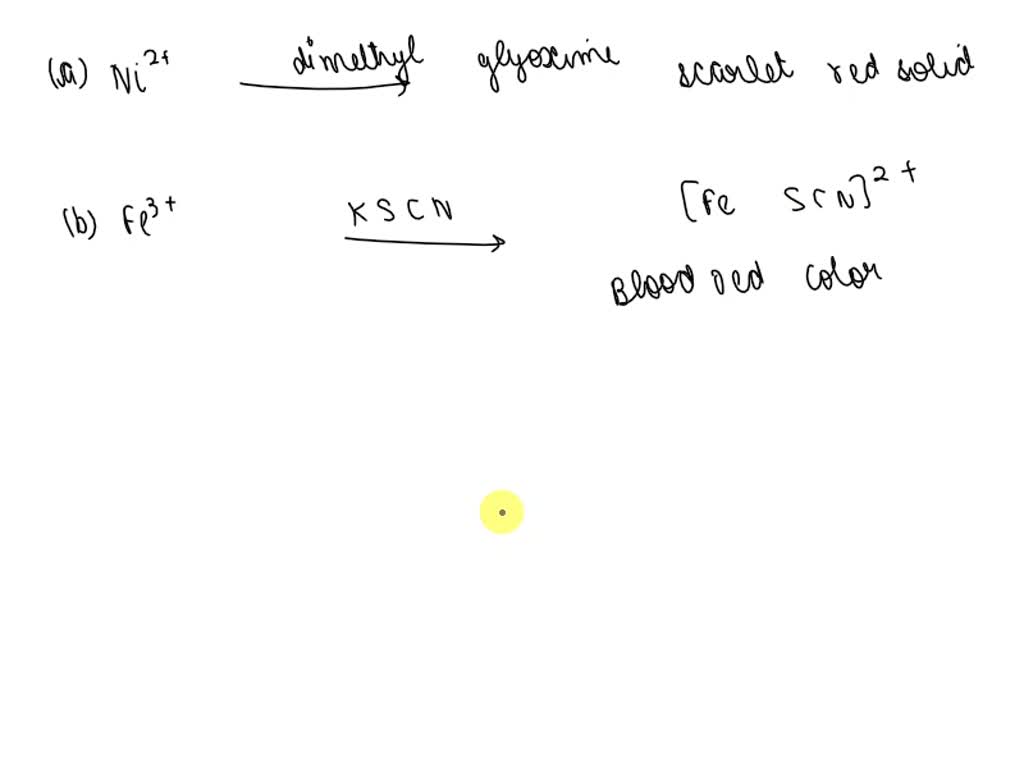 (a) Ni²⁺ dimethyl glyoxime scarlet red solid
(b) Fe³⁺ KSCN [Fe SCN]²⁺
Blood red color